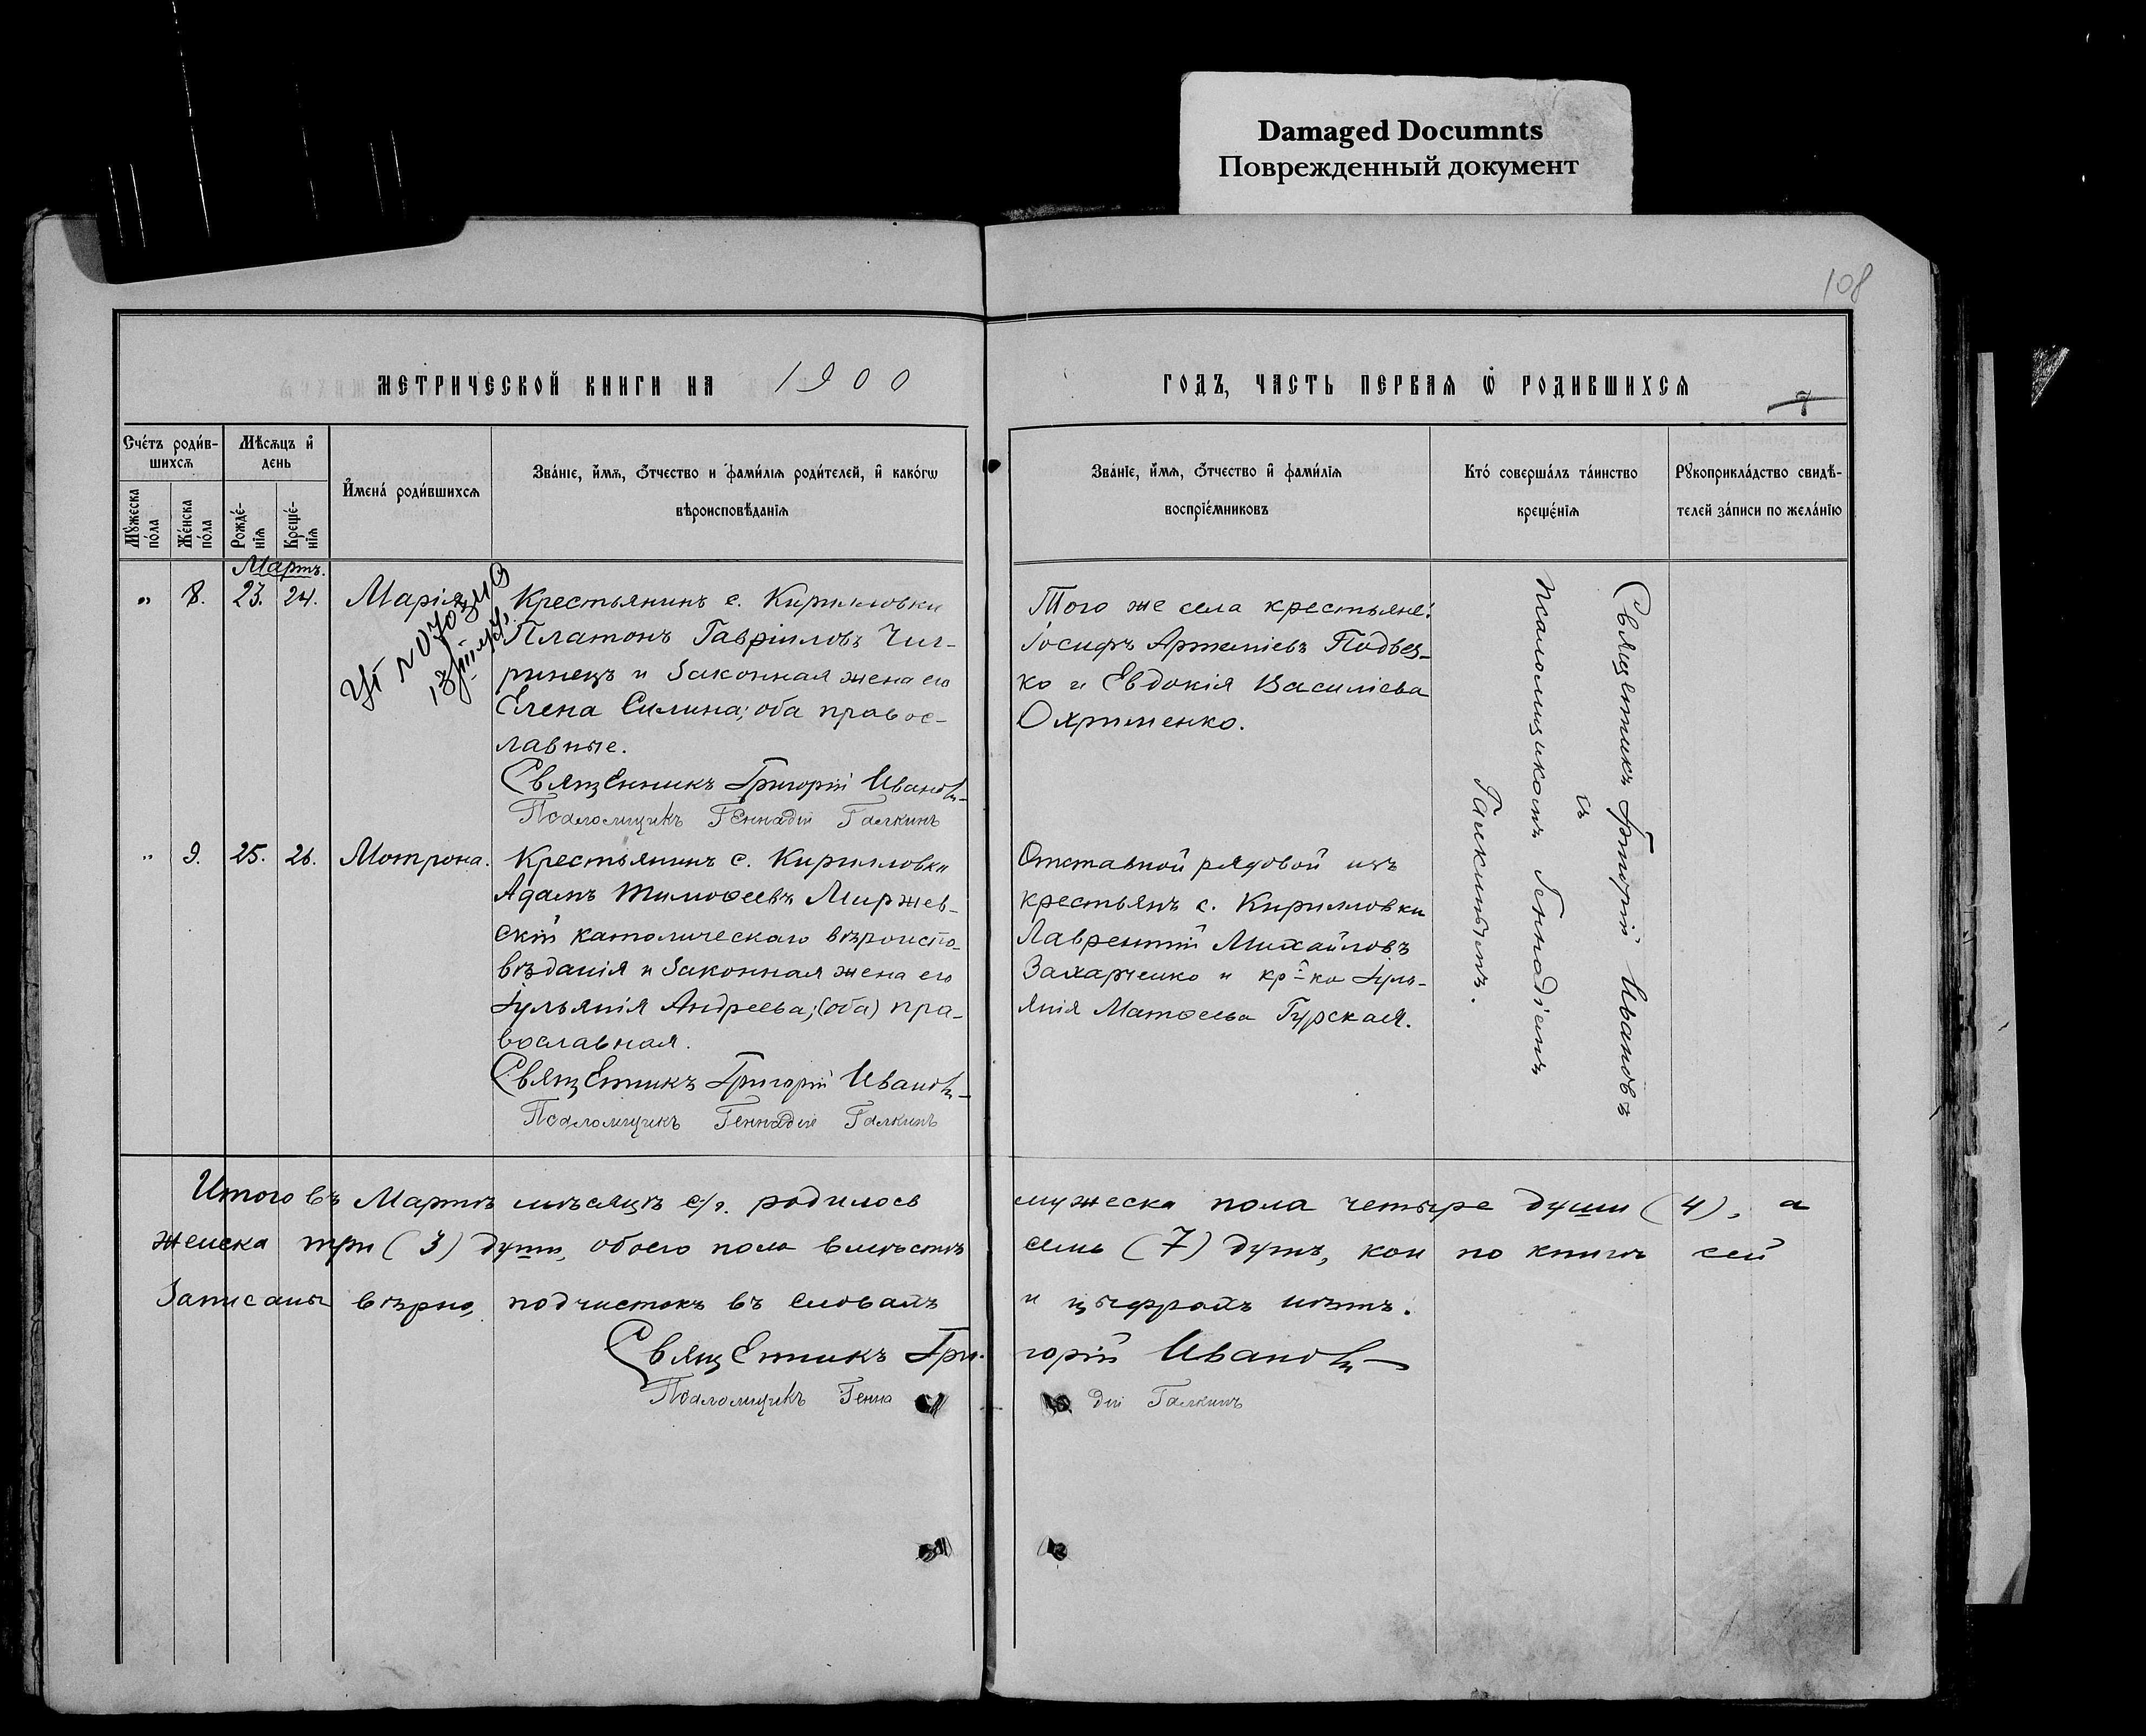 Damaged Documnts
Поврежденный документ
108
МЕТРИЧЕСКОЙ КНИГИ НА 1900
ГОДЪ, ЧАСТЬ ПЕРВАЯ Ѡ РОДИВШИХСЯ
7
Сче́тъ роди́в-
шихсѧ
Мꙋ́жеска
по́ла
Же́нска
по́ла
Мѣ́сѧцъ и҆
день
Рожде́-
нїѧ
Креще́-
нїѧ
И҆мена́ роди́вшихсѧ
Зва́нїе, и҆́мѧ, ѻ҆́тчество и фами́лїѧ роди́телей, и҆ како́гѡ
вѣроисповѣ́данїѧ
Зва́нїе, и҆́мѧ, ѻ҆́тчество и҆ фами́лїѧ
воспрїе́мниковъ
Кто́ соверша́лъ та́инство
креще́нїѧ
Рꙋкоприкла́дство свидѣ́-
телей за́писи по жела́нїю
Мартъ.
„ 8. 23. 24. Марія
Крестьянинъ с. Кирилловки
Платонъ Гавріиловъ Чиг-
ринецъ и законная жена его
Елена Силина; оба правос-
лавные.
Священникъ Григорій Ивановъ
Псаломщикъ Геннадій Галкинъ
Того же села крестьяне:
Іосифъ Артеміевъ Подвез-
ко и Евдокія Василіева
Охрименко.
Священникъ Григорій Ивановъ
съ
псаломщикомъ Геннадіемъ
Галкинымъ.
„ 9. 25. 26. Мотрона.
Крестьянинъ с. Кирилловки
Адамъ Тимоѳеевъ Миржев-
скій католическаго вѣроиспо-
вѣданія и законная жена его
Іульянія Андреева; (оба) пра-
вославная.
Священникъ Григорій Ивановъ
Псаломщикъ Геннадій Галкинъ
Отставной рядовой изъ
крестьянъ с. Кирилловки
Лаврентій Михайловъ
Захарченко и кр-ка Іуль-
янія Матѳеева Гурская.
Итого въ Мартѣ мѣсяцѣ с/г. родилось мужеска пола четыре души (4), а
женска три (3) души, обоего пола вмѣстѣ семь (7) душъ, кои по книгѣ сей
записаны вѣрно, подчистокъ въ словахъ и цыфрахъ нѣтъ.
Священникъ Григорій Ивановъ
Псаломщикъ Геннадій Галкинъ